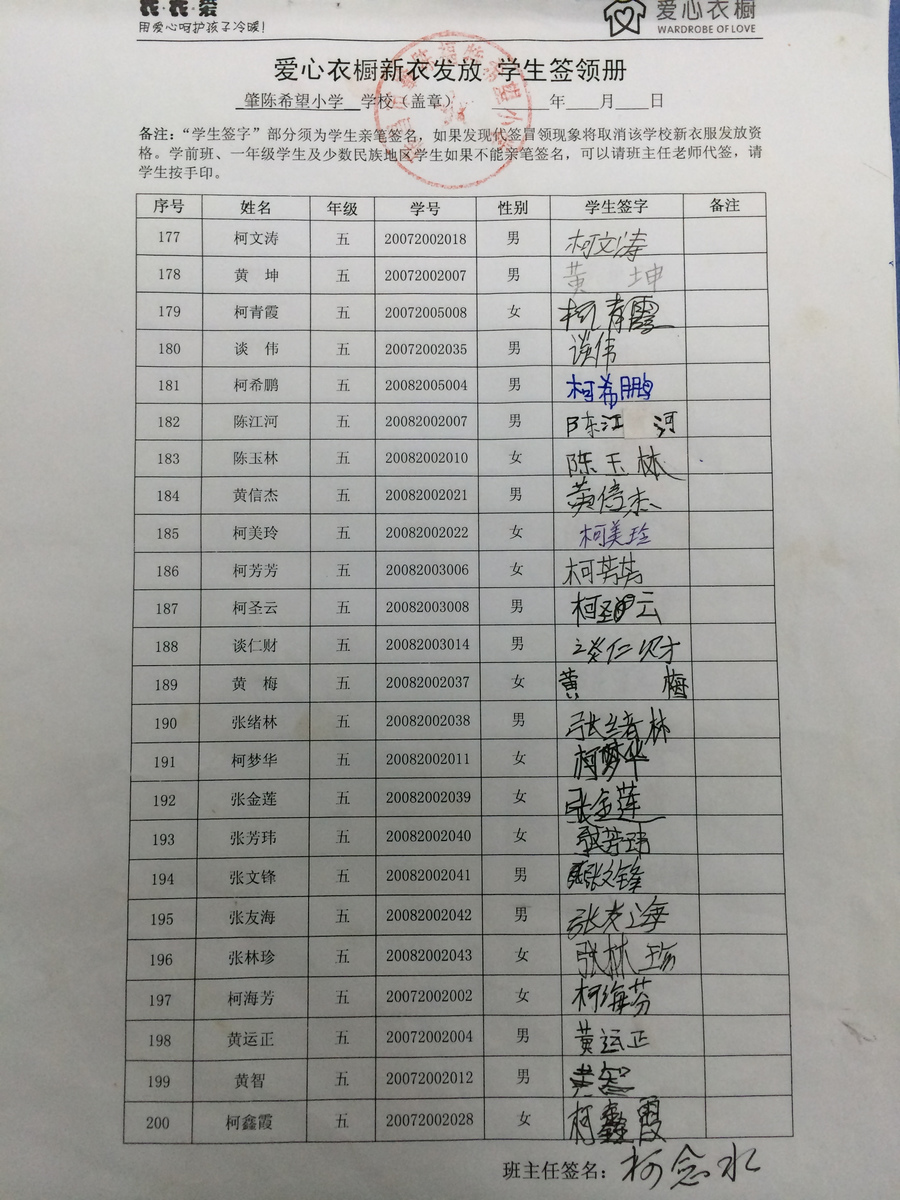 衣·衣·爱
用爱心呵护孩子冷暖!
爱心衣橱
WARDROBE OF LOVE
爱心衣橱新衣发放 学生签领册
肇陈希望小学 学校（盖章） 年 月 日
备注：“学生签字”部分须为学生亲笔签名，如果发现代签冒领现象将取消该学校新衣服发放资
格。学前班、一年级学生及少数民族地区学生如果不能亲笔签名，可以请班主任老师代签，请
学生按手印。
序号 姓名 年级 学号 性别 学生签字 备注
177 柯文涛 五 20072002018 男 柯文涛
178 黄 坤 五 20072002007 男 黄 坤
179 柯青霞 五 20072005008 女 柯青霞
180 谈 伟 五 20072002035 男 谈伟
181 柯希鹏 五 20082005004 男 柯希鹏
182 陈江河 五 20082002007 男 陈江 河
183 陈玉林 五 20082002010 女 陈玉林
184 黄信杰 五 20082002021 男 黄信杰
185 柯美玲 五 20082002022 女 柯美玲
186 柯芳芳 五 20082003006 女 柯芳芳
187 柯圣云 五 20082003008 男 柯圣云
188 谈仁财 五 20082003014 男 谈仁财
189 黄 梅 五 20082002037 女 黄 梅
190 张绪林 五 20082002038 男 张绪林
191 柯梦华 五 20082002011 女 柯梦华
192 张金莲 五 20082002039 女 张金莲
193 张芳玮 五 20082002040 女 张芳玮
194 张文锋 五 20082002041 男 张文锋
195 张友海 五 20082002042 男 张友海
196 张林珍 五 20082002043 女 张林珍
197 柯海芳 五 20072002002 女 柯海芬
198 黄运正 五 20072002004 男 黄运正
199 黄智 五 20072002012 男 黄智
200 柯鑫霞 五 20072002028 女 柯鑫霞
班主任签名：柯念水